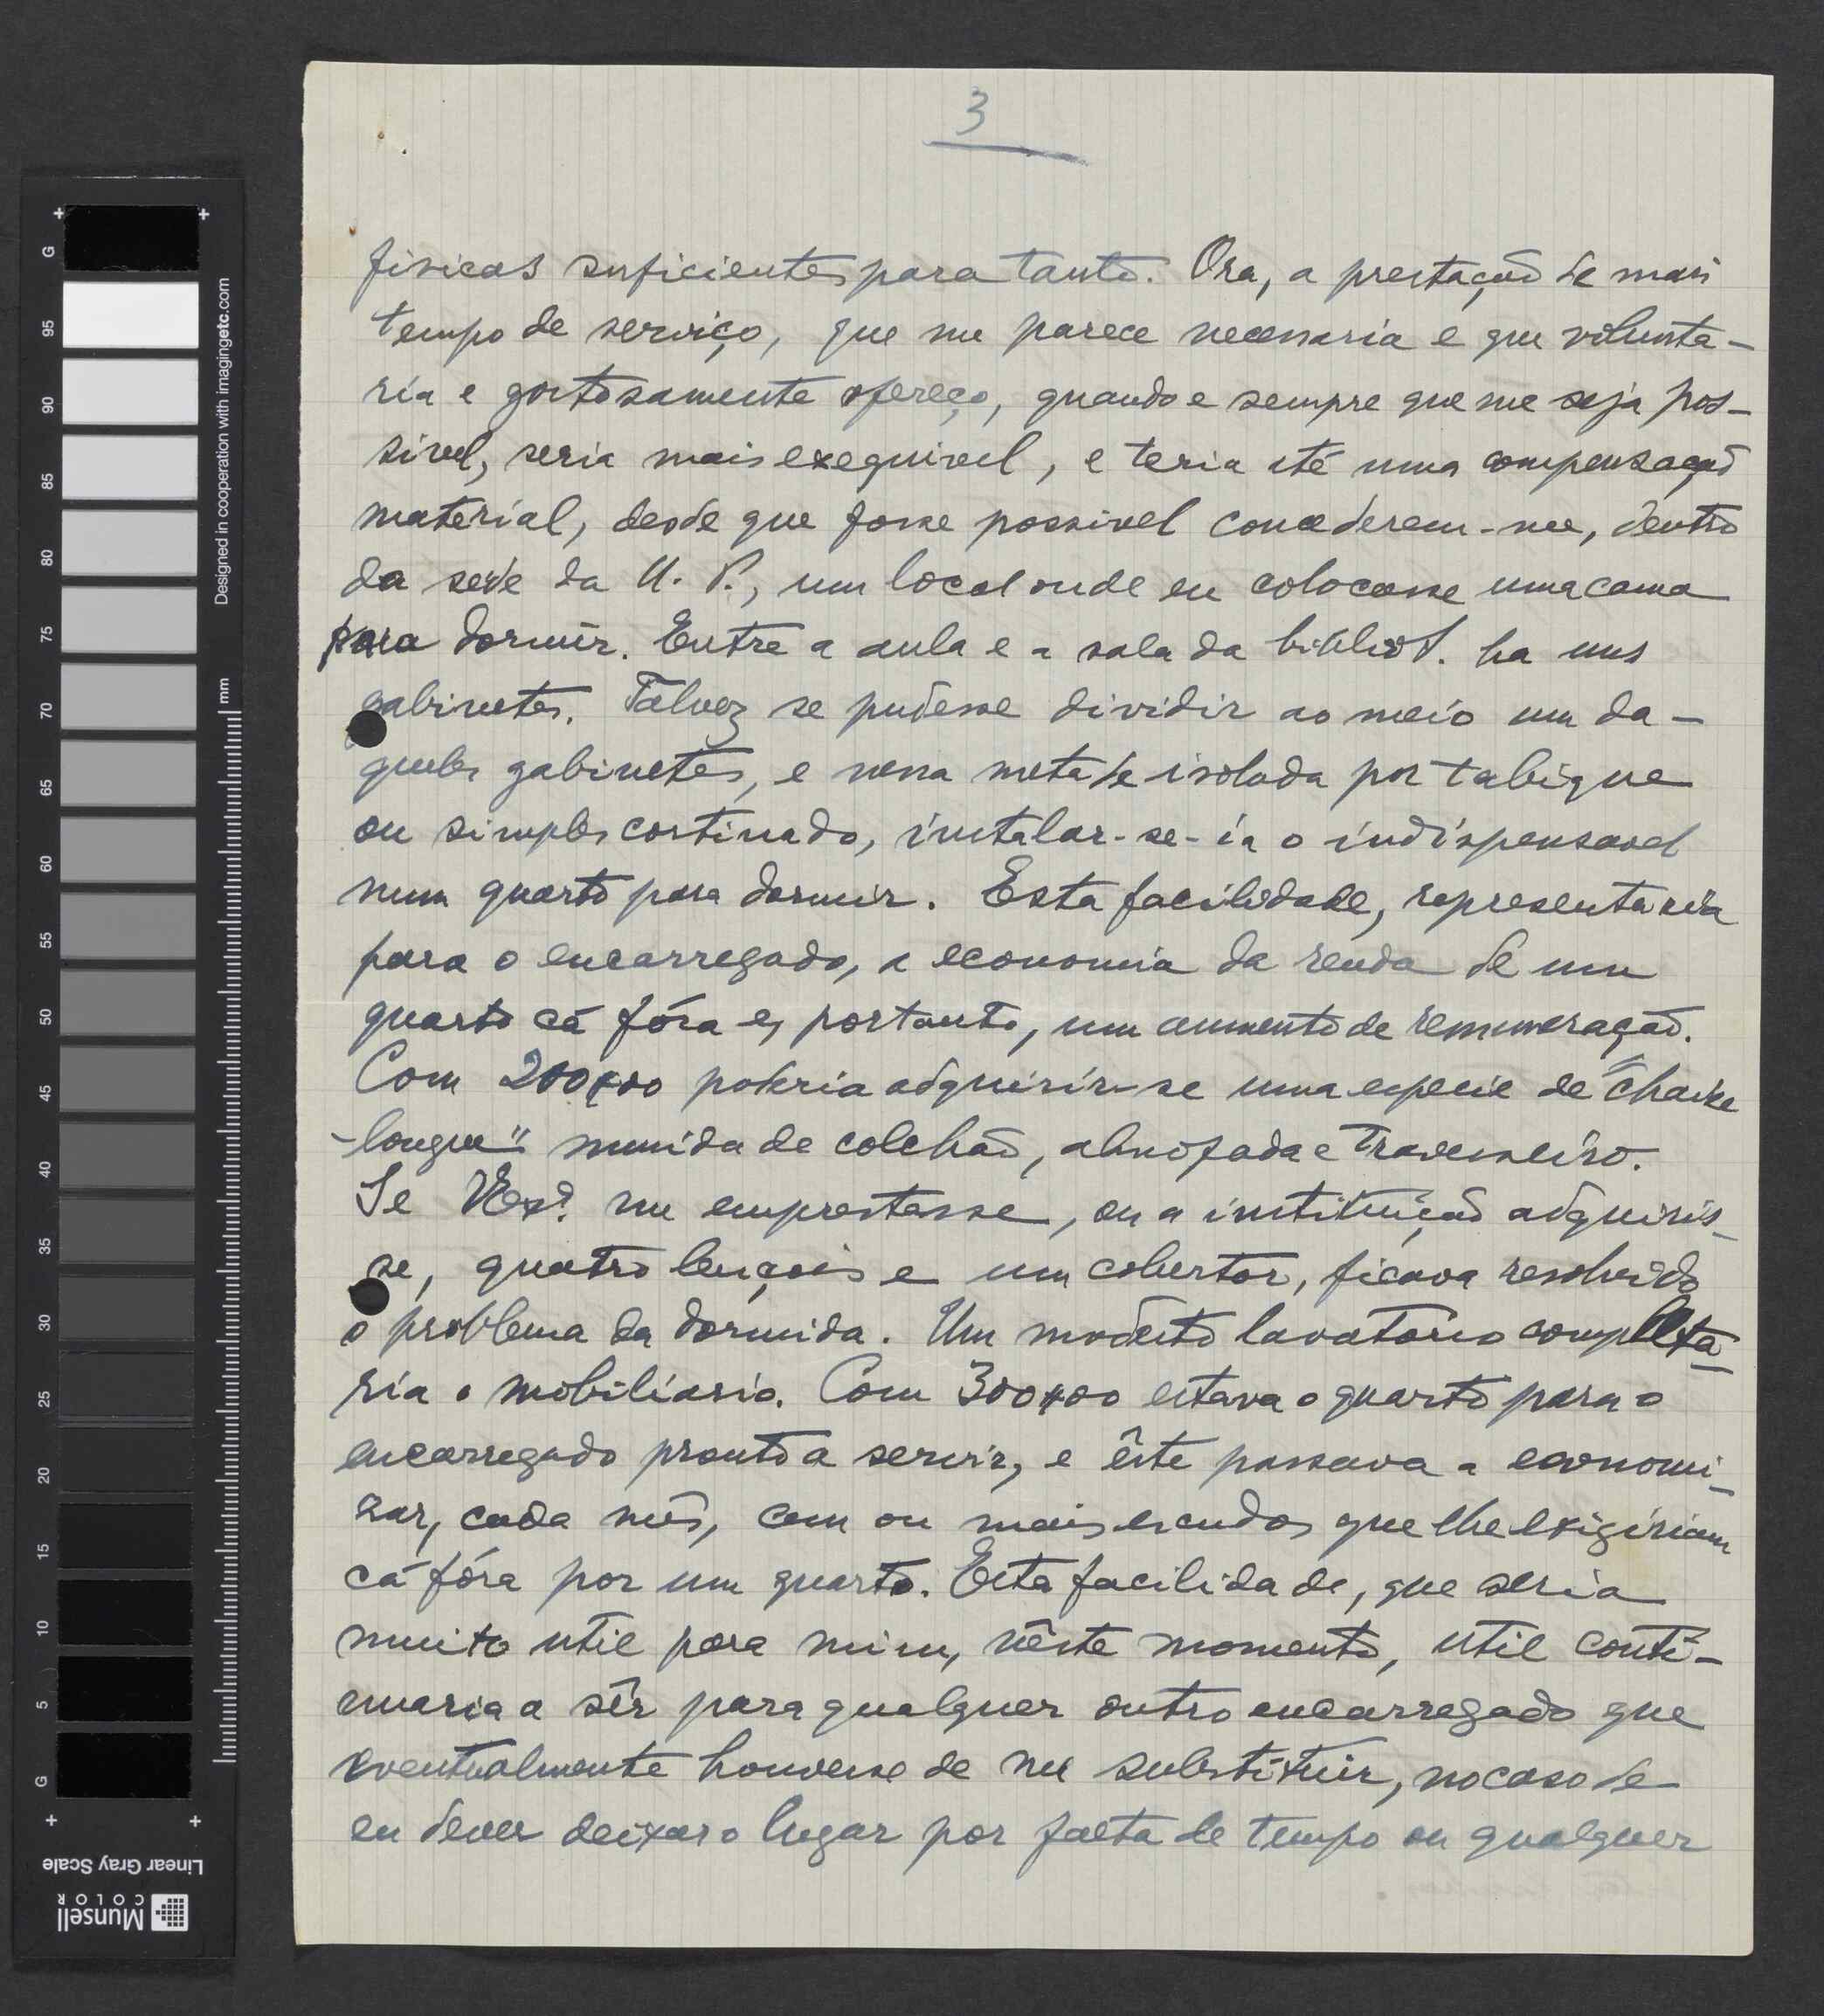 3
fisicas suficientes para tanto. Ora, a prestação de mais
tempo de serviço, que me parece necessaria e que volunta-
ria e gostosamente ofereço, quando e sempre que me seja pos-
sivel, seria mais exequivel, e teria até uma compensação
material, desde que fosse possivel concederem-me, dentro
da sede da U. P., um local onde eu colocasse uma cama
para dormir. Entre a aula e a sala da bibliot. ha uns
gabinetes. Talvez se pudesse dividir ao meio um da-
queles gabinetes, e nessa metade isolada por tabique
ou simples cortinado, instalar-se-ia o indispensavel
num quarto para dormir. Esta facilidade, representaria
para o encarregado, a economia da renda de um
quarto cá fóra e, portanto, um aumento de remuneração.
Com 200$00 poderia adquirir-se uma especie de "chaise
-longue" munida de colchão, almofada e travesseiro.
Se V. Exª. me emprestasse, ou a instituição adquiris-
se, quatro lençois e um cobertor, ficava resolvido
o problema da dormida. Um modesto lavatório completa-
ria o mobiliario. Com 300$00 estava o quarto para o
encarregado pronto a servir, e êste passava a economi-
zar, cada mês, cem ou mais escudos que lhe exigiriam
cá fóra por um quarto. Esta facilidade, que seria
muito util para mim, nêste momento, util conti-
nuaria a sêr para qualquer outro encarregado que
eventualmente houvesse de me substituir, no caso de
eu dever deixar o lugar por falta de tempo ou qualquer
G
95
90
85
80
75
70
65
60
55
50
45
40
35
30
25
20
15
10
5
G
mm
Designed in cooperation with imagingetc.com
Linear Gray Scale
Munsell
COLOR